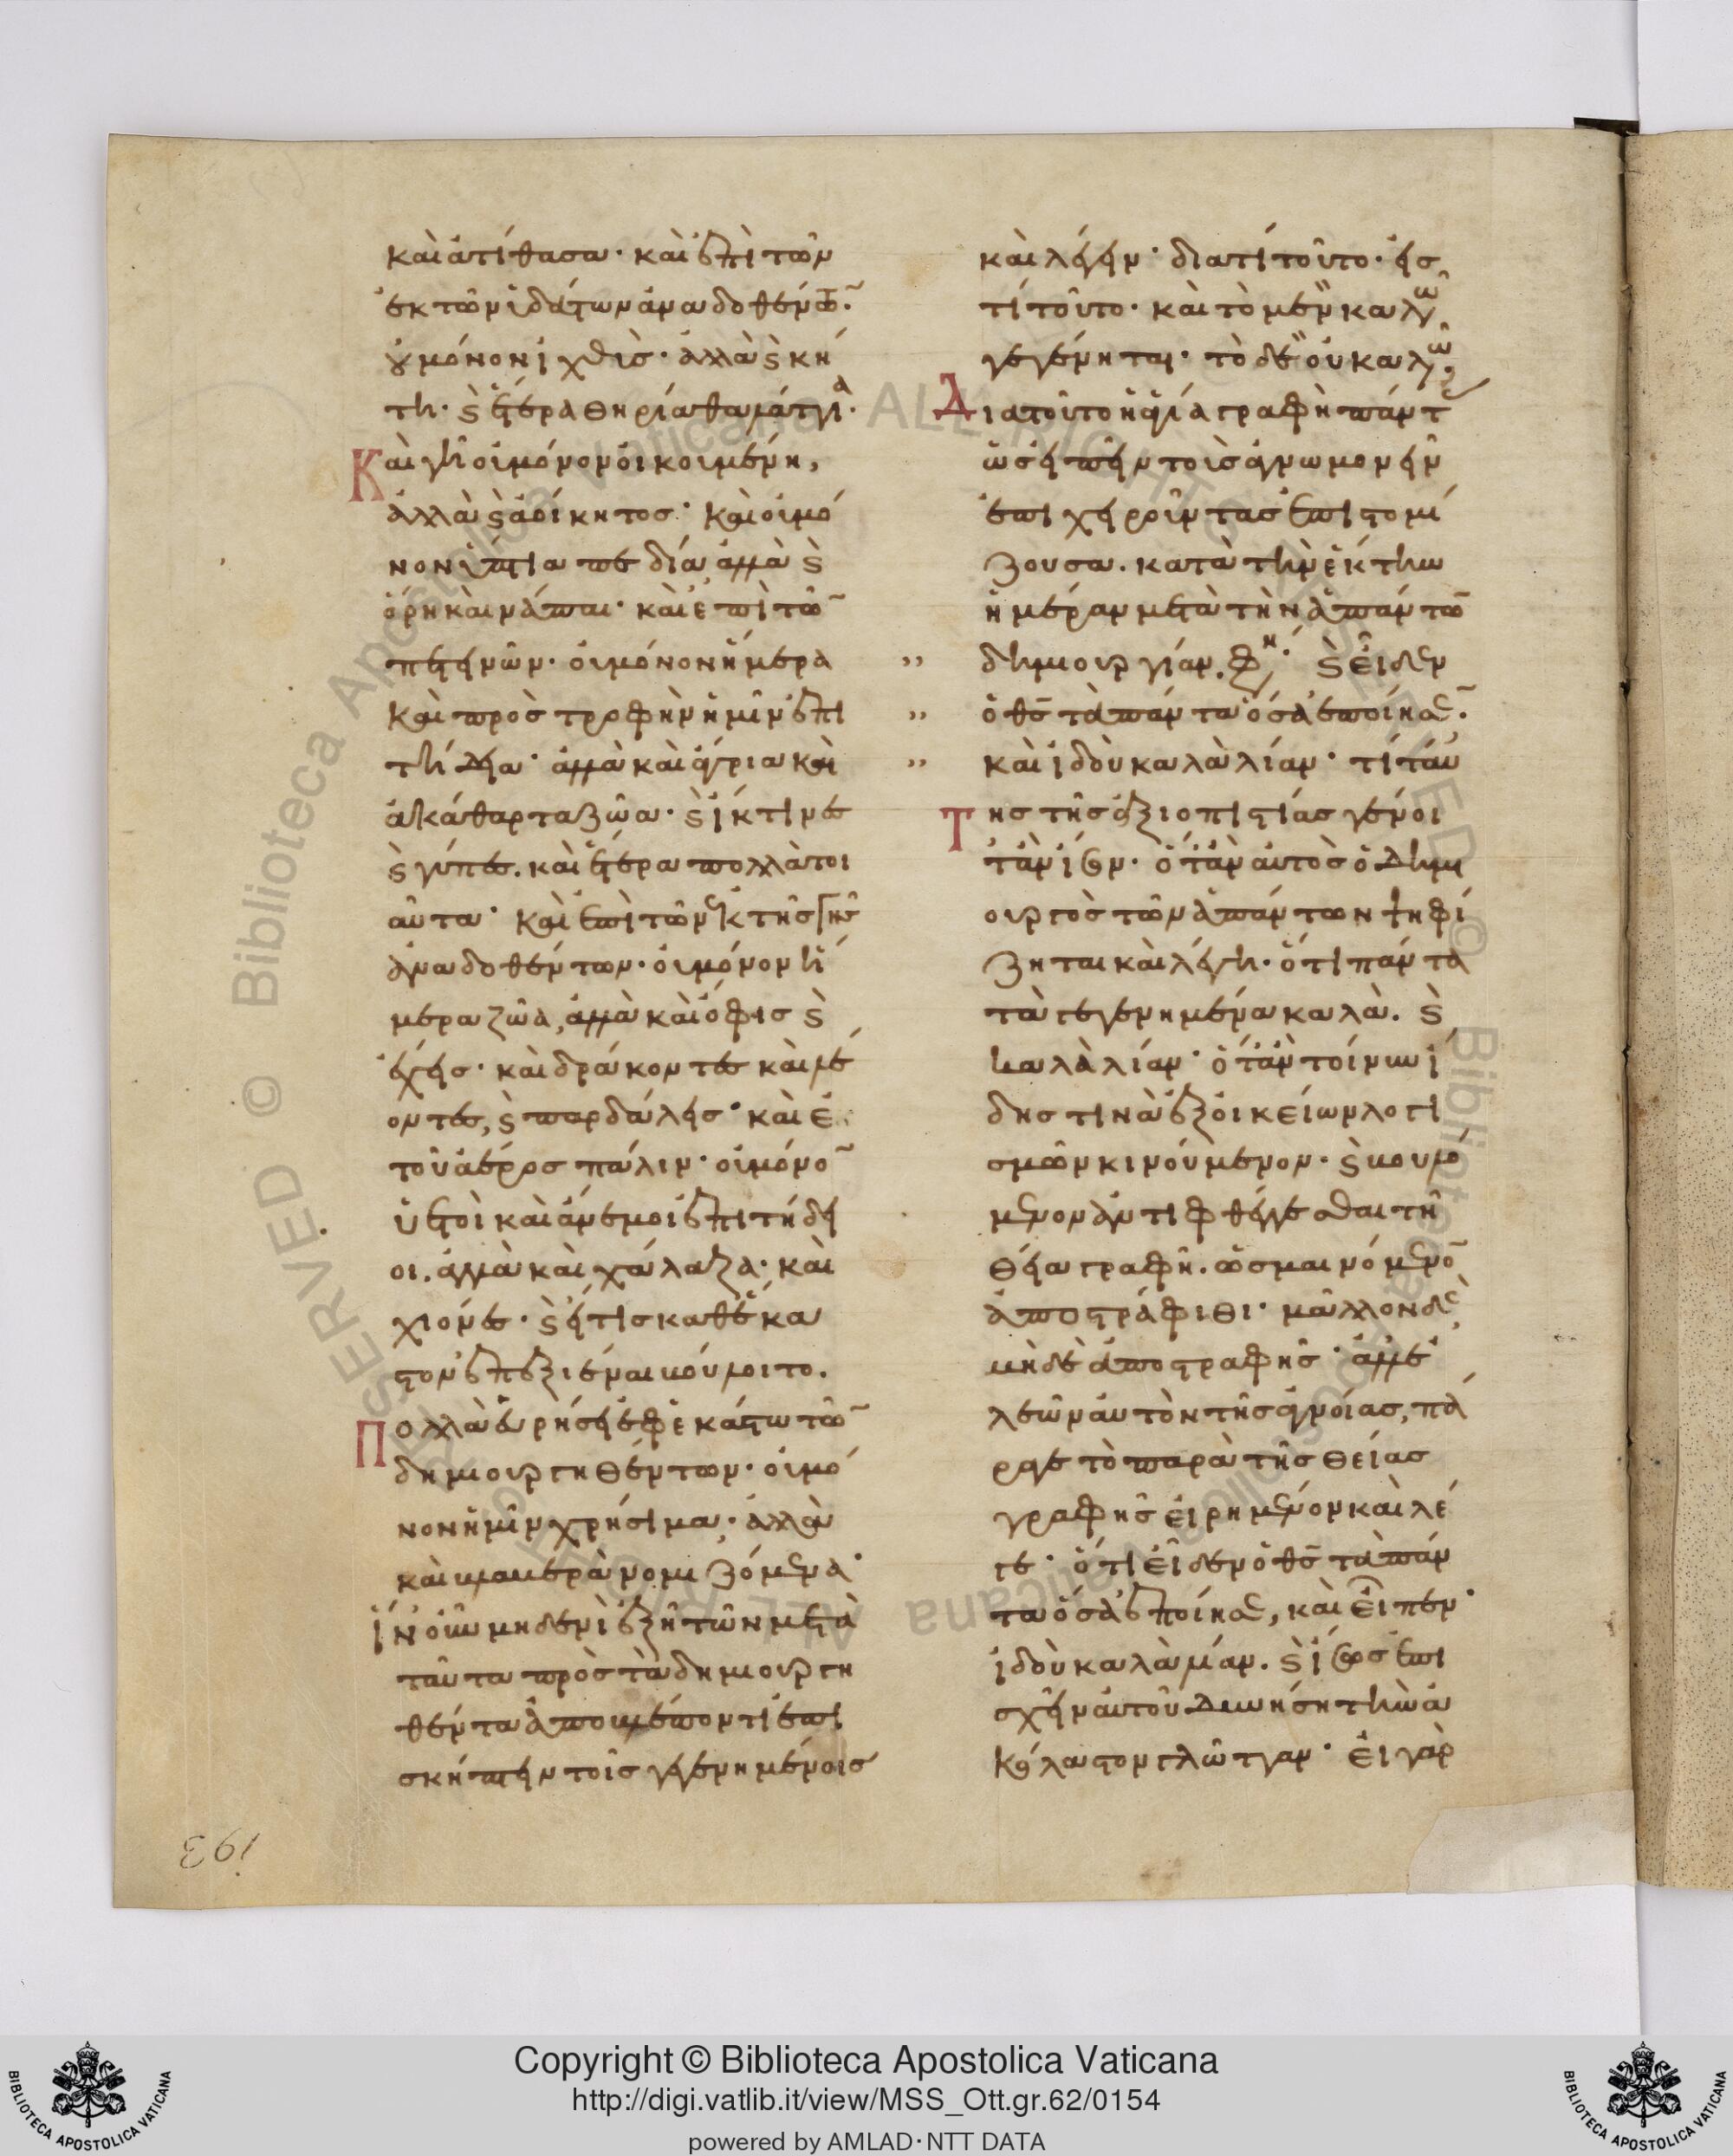 καὶ ἀτίθασα· καὶ ἐπὶ τῶν
ἐκ τῶν ὑδάτων ἀναδοθέντω̅·
ȣ μόνον ἰχθὺσ· ἀλλὰ ϛ κή
τη· ϛ ἕτερα θηρία θαλάττια·
Καὶ γῆ οὐ μόνον οἰκουμένη,
ἀλλὰ ϛ ἀοίκητοσ· καὶ οὐ μό
νον ἵππια πεδία, ἀλλὰ ϛ
ὄρη καὶ νάπαι· καὶ ἐπὶ τῶ̅
πετεινῶν· οὐ μόνον ἥμερα
καὶ πρὸσ τροφὴν ἡμῖν ἐπι
τήδεια· ἀλλὰ καὶ ἄγρια καὶ
ἀκάθαρτα ζῶα· ϛ ἴκτινεσ
ϛ γύπεσ. καὶ ἕτερα πολλὰ τοι
αῦτα· καὶ ἐπὶ τῶν ἐκ τῆσ γῆσ
ἀναδοθέντων· οὐ μόνον ἥ
μερα ζῶα, ἀλλὰ καὶ ὄφισ ϛ
ἔχεισ· καὶ δράκοντεσ καὶ λέ
οντεσ, ϛ παρδάλεισ· καὶ ἐ
τοῦ ἀέροσ πάλιν· οὐ μόνο̅
ὑετοὶ καὶ ἄνεμοι ἐπιτήδει
οι. ἀλλὰ καὶ χάλαζα· καὶ
χιόνεσ· ϛ εἴ τισ καθέκα
στον ἐπεξιέναι βούλοιτο.
Πολλὰ εὑρήσει ἐφ ἑκάστω τῶ̅
δημιουργηθέντων· οὐ μό
νον ἡμῖν χρήσιμα, ἀλλὰ
καὶ βλαβερὰ νομιζόμενα·
ἵν οὖν μηδενὶ ἐξῆ τῶν μετὰ
ταῦτα πρὸσ τὰ δημιουργη
θέντα ἀποβλέποντι ἐπι
σκήπτειν τοῖσ γεγενημένοισ
καὶ λέγειν· διατί τοῦτο· εἰσ
τί τοῦτο· καὶ τὸ μὲν καλῶ
γεγένηται· τὸ δὲ οὐ καλῶ·
Διατοῦτο ἡ ἁγία γραφὴ πάντ
ὡσ εἰπεῖν τοῖσ ἀγνωμονεῖν
ἐπιχειροῦντασ ἐπιστομί
ζουσα. κατὰ τὴν ἕκτην
ἡμέραν μετὰ τὴν ἁπάντω̅
,, δημιουργίαν. φη· ϛ εἶδεν
,, ὁ θ̅ς̅ τὰ πάντα ὅσα ἐποίησε̅·
,, καὶ ἰδοὺ καλὰ λίαν· τί ταύ
Τησ τῆσ ἀξιοπιστίασ γένοι
τ ἂν ἴσον· ὅταν αὐτὸσ ὁ δημι
ουργὸσ τῶν ἁπάντων ψηφί
ζηται καὶ λέγη· ὅτι πάντα
τὰ γεγενημένα καλὰ. ϛ
καλὰ λίαν· ὅταν τοίνυν ἴ
δησ τινὰ ἐξ οἰκείων λογι
σμῶν κινούμενον· ϛ βουλό
μενον ἀντιφθέγγεσθαι τῆ
θεία γραφῆ. ὡσ μαινόμενο̅
ἀποστράφηθι· μᾶλλον δὲ
μὴ δὲ ἀποστραφῆσ· ἀλλ ἐ
λεῶν αὐτὸν τῆσ ἀνοίασ, πά
ραγε τὸ παρὰ τῆσ θείασ
γραφῆσ εἰρημένον καὶ λέ
γε· ὅτι εἶδεν ὁ θ̅ς̅ τὰ πάν
τα ὅσα ἐποίησε, καὶ εἶπεν·
ἰδοὺ καλὰ λίαν. ϛ ἴσωσ ἐπι
σχεῖν αὐτοῦ δυνήση τὴν ἀ
κόλαστον γλῶτταν· εἰ γὰρ
193
Copyright © Biblioteca Apostolica Vaticana
http://digi.vatlib.it/view/MSS_Ott.gr.62/0154
powered by AMLAD·NTT DATA
BIBLIOTECA APOSTOLICA VATICANA
BIBLIOTECA APOSTOLICA VATICANA